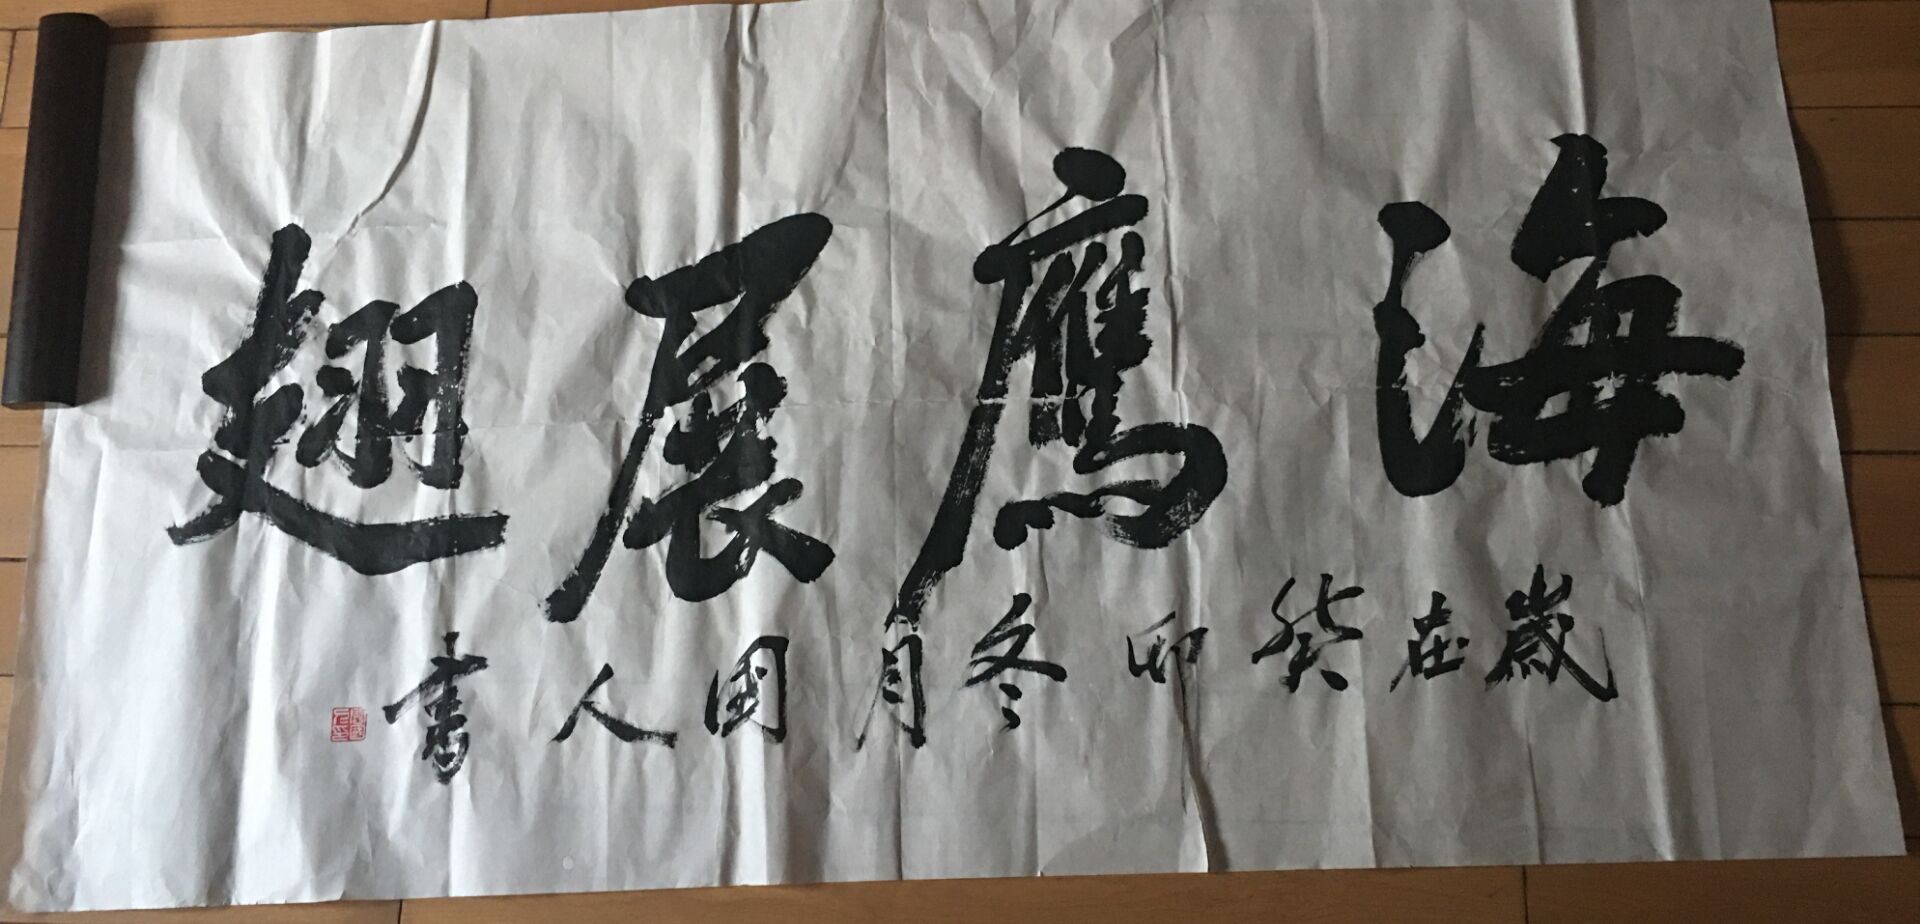 海鷹展翅
歲在癸卯冬月國人書